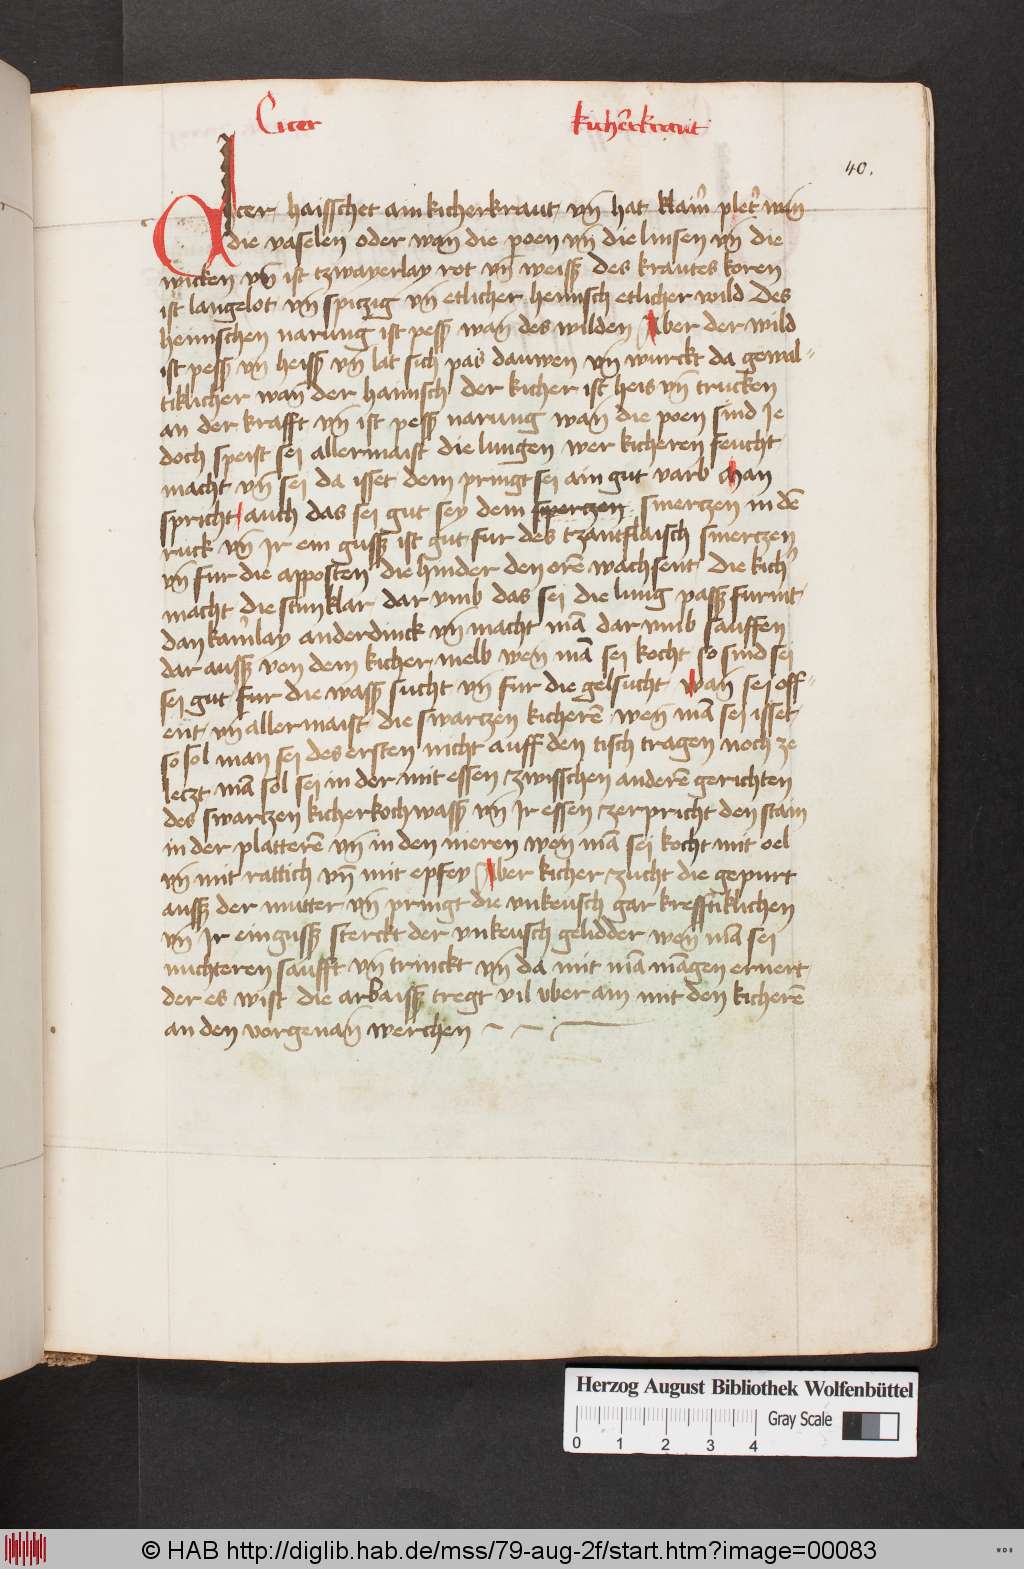 Cicer kicherkraut
40.
Cicer haisschet ain kicherkraut vn̄ hat klain̾ plet̾ wan̄
die vaselen oder wan̄ die poen vn̄ die linsen vn̄ die
wicken vn̄ ist tzwayerlay rot vn̄ weiss des krautes koren
ist langelot vn̄ spiczig vn̄ etlicher heimisch etlicher wild Des
heimischen narung ist pess̾ wan̄ des wilden Aber der wild
ist pess̾ vn̄ heiss̾ vn̄ lat sich pas dauwen vn̄ wurckt da gewal⸗
tiklicher wan̄ der haimsch der kicher ist heis vn̄ trucken
an der krafft vn̄ ist pess̾ narung wan̄ die poen sind Je
doch speist sei allermaist die lungen wer kicheren feucht
macht vn̄ sei da isset dem pringt sei ain gut varb Man
spricht auch das sei gut sey dem smerczen in dē
ruck vn̄ Jr ein guss ist gut fur des tzantflaisch smerczen
vn̄ fur die apposten die hinder den orē wachsent die kich̾
macht die stim klar dar vmb das sei die lung pass furint
dan kain̾lay anderdinck vn̄ macht mā dar vmb sauffen
dar auss von dem kicher melb wen mā sei kocht so sind sei
sei gut fur die wass̾ sucht vn̄ fur die gelsucht wan̄ sei off⸗
ent vn̄ allermaist die swarczen kicherē wen mā sei isset
so sol man sei des ersten nicht auff den tisch tragen noch ze
leczt mā sol sei in der mit essen zwisschen anderē gerichten
des swartzen kicherkochwass̾ vn̄ Jr essen zerpricht den stain
in der platterē vn̄ in den nieren wen mā sei kocht mit oel
vn̄ mit rattich vn̄ mit epfey Aber kicher zucht die gepurt
auss der muter vn̄ pringt die vnkeusch gar krefftiklichen
vn̄ Jr einguss sterckt der vnkeusch gelidder wen mā sei
nuchteren saufft vn̄ trinckt vn̄ da mit mā māgen ernert
der es wist die arbaiss tregt vil vber ain mit den kicherē
an den vorgenan̄ werchen
Herzog August Bibliothek Wolfenbüttel
Gray Scale
0 1 2 3 4
© HAB http://diglib.hab.de/mss/79-aug-2f/start.htm?image=00083